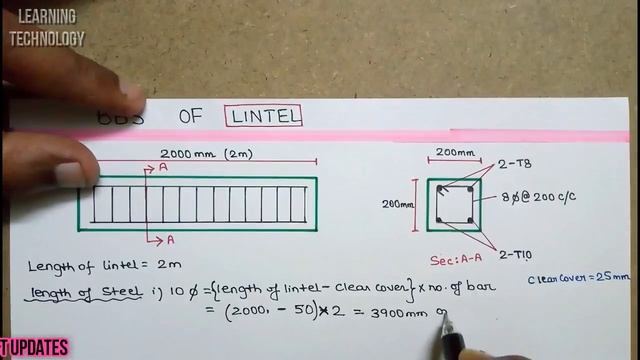 LEARNING
TECHNOLOGY
BBS OF LINTEL
2000mm (2m)
A
A
200mm
200mm
2-T8
8φ@200 c/c
2-T10
Sec:A-A
Clear cover = 25mm
Length of lintel = 2m
length of Steel i) 10 φ = {length of lintel - clear cover} × no. of bar
= (2000 - 50) × 2 = 3900mm o
T UPDATES